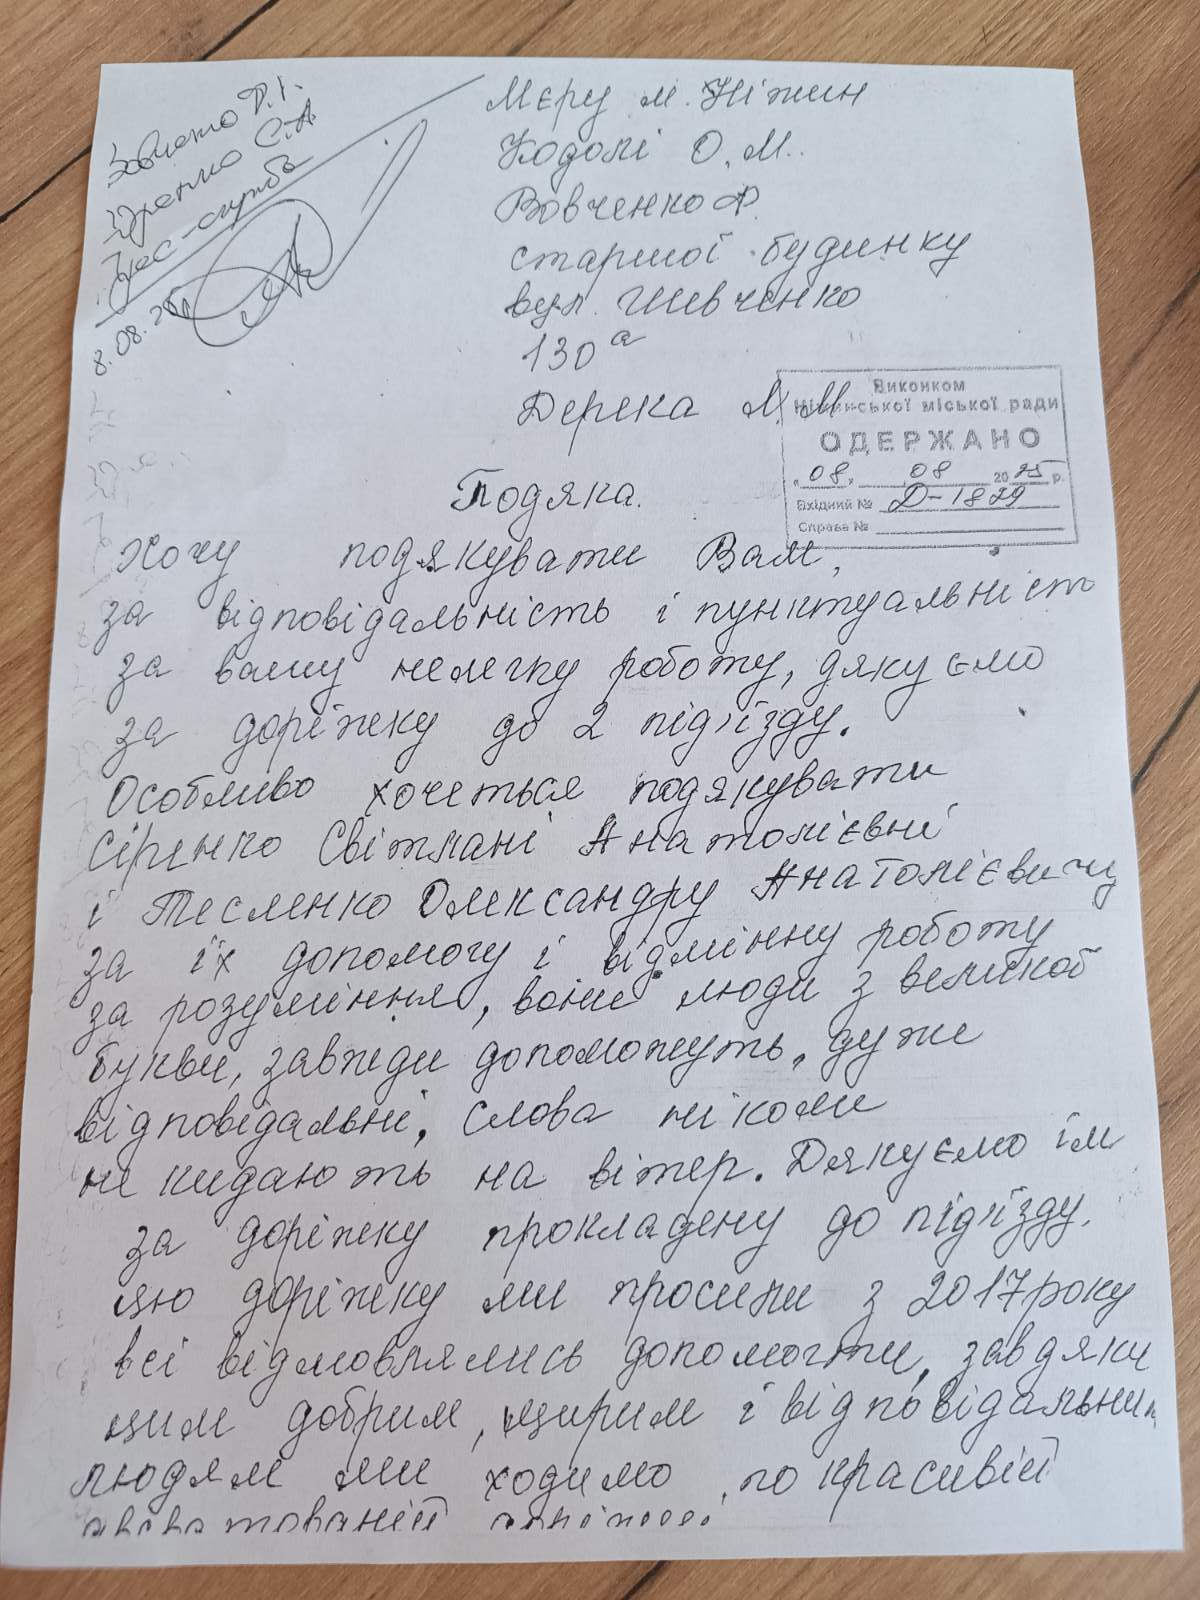 Вовченко Ф.І.
Сіренко С.А
Прес-служба
8.08.25
Мєру м. Ніжин
Кодолі О.М.
Вовченко Ф.
старшої будинку
вул. Шевченко
130а
Дерека М.М
Виконком
Ніжинської міської ради
ОДЕРЖАНО
"08" 08 2025 р.
Вхідний № Д-1829
Справа №
Подяка.
Хочу подякувати Вам,
за відповідальність і пунктуальність
за вашу нелегку роботу, дякуємо
за доріжку до 2 підїзду.
Особливо хочеться подякувати
Сіренко Світлані Анатолієвні
і Тесленко Олександру Анатолієвичу
за їх допомогу і відмінну роботу
за розуміння, вони люди з великої
букви, завжди допоможуть, дуже
відповідальні, слова ніколи
не кидають на вітер. Дякуємо їм
за доріжку прокладену до підїзду.
цю доріжку ми просили з 2017 року
всі відмовлялись допомогти, завдяки
цим добрим, щирим і відповідальним
людям ми ходимо по красивій